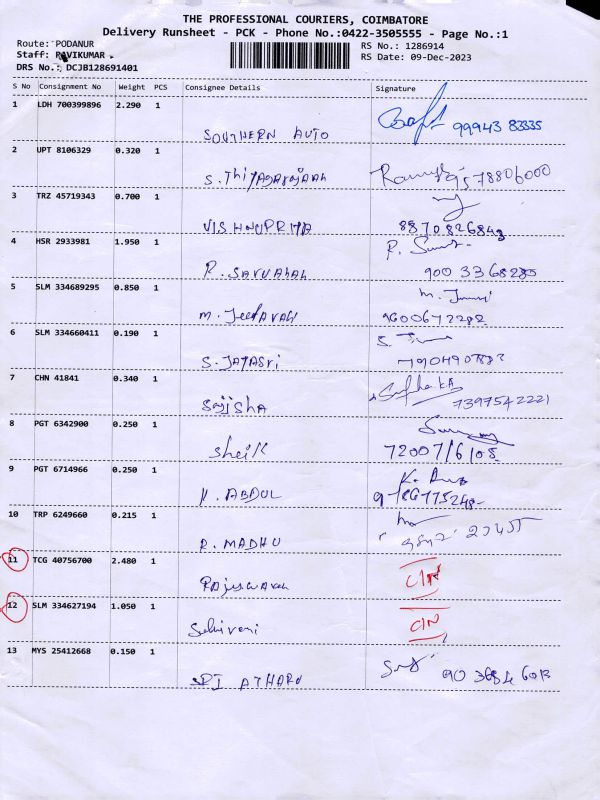 THE PROFESSIONAL COURIERS, COIMBATORE
Delivery Runsheet - PCK - Phone No.:0422-3505555 - Page No.:1
Route: PODANUR
RS No.: 1286914
Staff: RAVIKUMAR
RS Date: 09-Dec-2023
DRS No.: DCJB128691401
S No Consignment No Weight PCS Consignee Details Signature
1 LDH 700399896 2.290 1
SOUTHERN AUTO 99943 83335
2 UPT 8106329 0.320 1
S. Thiyagarajaah 9578806000
3 TRZ 45719343 0.700 1
VISHNUPRIYA 8870826843
4 HSR 2933981 1.950 1
R. SARVAHAN 900 3368285
5 SLM 334689295 0.850 1
9600672282
6 SLM 334660411 0.190 1
S. JAYASri
7 CHN 41841 0.340 1
Sajisha 7397542221
8 PGT 6342900 0.250 1
Sheik 72007/6108
9 PGT 6714966 0.250 1
ABDUL
10 TRP 6249660 0.215 1
R. MADHU
11 TCG 40756700 2.480 1
Rajeswaran
12 SLM 334627194 1.050 1
C/N
13 MYS 25412668 0.150 1
SRI ATHARV